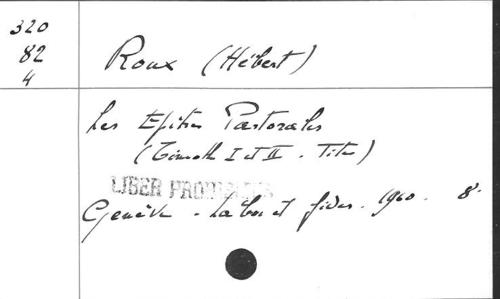 320
82
4
Roux (Hébert)
Les Epîtres Pastorales
(Timoth I et II - Tite)
LIBER PRO
Genève - Labor et fides - 1960 - 8°